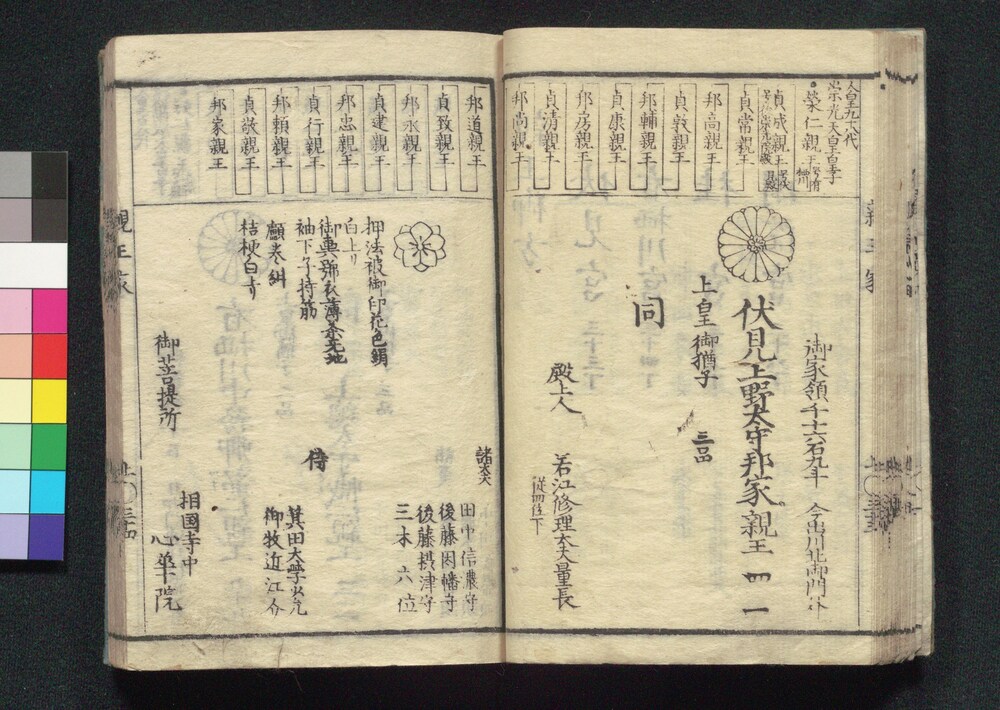 親王家
崇光天皇皇子
榮仁親王
貞成親王
貞常親王
邦高親王
貞敦親王
邦輔親王
貞康親王
邦房親王
貞清親王
邦尚親王
御家領千十六石九斗
今出川北御門外
伏見上野太守邦家親王
四一
上皇御猶子
三品
同
殿上人
若江修理大夫量長
従四位下
邦道親王
貞致親王
邦永親王
貞建親王
邦忠親王
貞行親王
邦頼親王
貞敬親王
邦家親王
押法被御印花色絹
白上り
袖下子持筋
桔梗白す
諸大夫
田中信濃守
後藤因幡守
後藤摂津守
三木六位
侍
箕田大学少允
御牧近江介
御菩提所
相国寺中
心華院
親王家